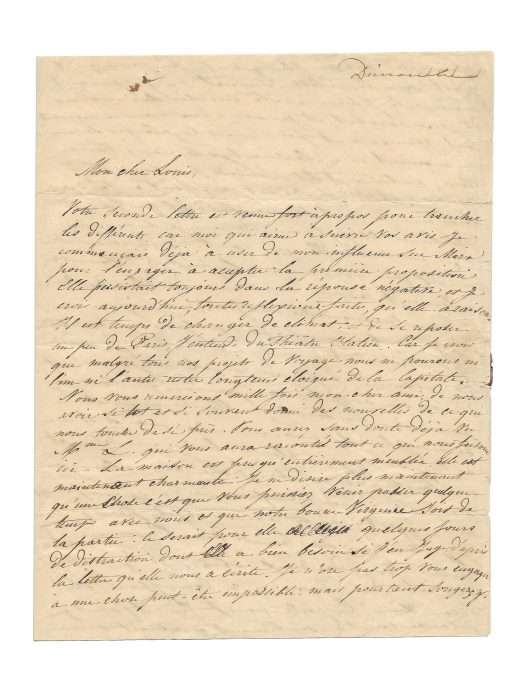 Dimanche
Mon cher Louis,
Votre seconde lettre est venue fort à propos pour trancher
les différents car moi qui aime à suivre vos avis je
commençais déjà à user de mon influence sur
pour l'engager à accepter la première proposition
Elle persistait toujours dans la réponse négative et je
crois aujourd'hui, toutes réflexions faites, qu'elle a raison
Il est temps de changer de climat et de se reposer
un peu de Paris, du théâtre. Car je crois
que malgré tous nos projets de voyage nous ne pourons ni
l'un ni l'autre rester longtems éloigné de la capitale.
Nous vous remercions mille fois mon cher ami de nous
avoir si tôt et si souvent donné des nouvelles de ce qui
nous touche de si près. Vous aurez sans doute déjà vu
Mme L. qui vous aura raconté tout ce que nous
ici. La maison est presqu'entièrement meublée elle est
maintenant charmante. Je ne désire plus maintenant
qu'une chose c'est que vous puissiez venir passer quelque
tems avec nous et que notre bonne Virginie soit de
la partie: ce serait pour elle quelques jours
de distraction dont elle a bien besoin si j'en juge d'après
la lettre qu'elle nous a écrite. Je n'ose pas trop vous engager
à une chose peut-être impossible: mais pourtant songez-y.